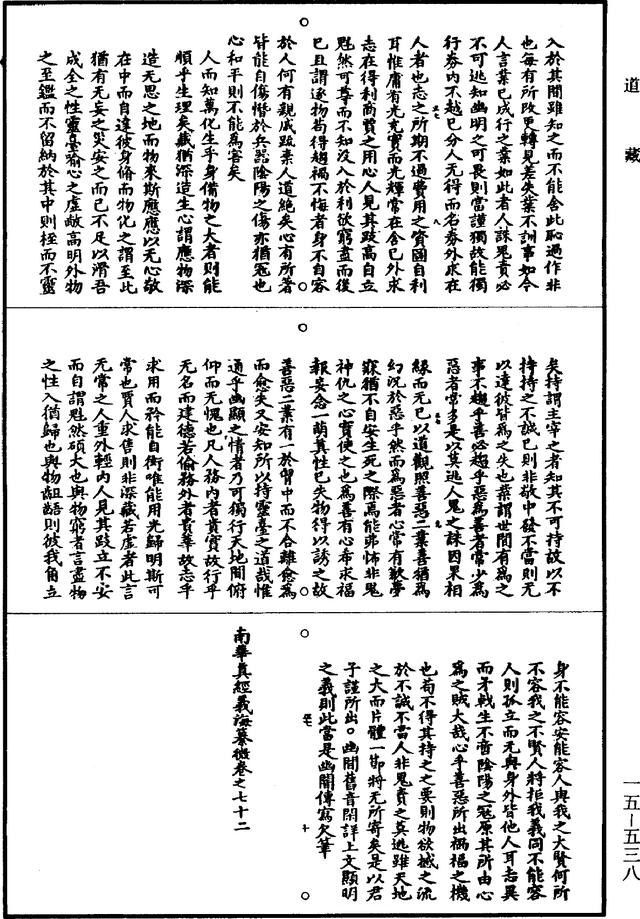 道藏
入於其間雖知之而不能舍此恥過作非
也每有所改更轉見差失業不訓事如今
人言業已成行之業如此者人誅鬼責必
不可逃知幽明之可畏則當謹獨故能獨
行券内不越已分人无得而名券外求在
人者也志之所期不過費用之資固自利
耳惟庸有光充實而光輝常在舍已外求
志在得利商賈之用心人見其跂高自立
魁然可尊而不知沒入於利欲窮盡而後
已且謂逐物苟得趨禍不悔者身不自容
於人何有親戚踈棄人道絕矣心有所著
皆能自傷憯於兵器陰陽之傷亦猶冦也
心和平則不能為害矣
人而知萬化生乎身備物之大者則能
順乎生理矣藏猶深造生心謂應物深
造无思之地而物來斯應應以无心敬
在中而自達彼身脩而物化之謂至此
猶有无妄之災安之而已不足以滑吾
成全之性靈臺喻心之虛敞高明外物
之至鑑而不留納於其中則桎而不靈
矣持謂主宰之者知其不可持故以不
持持之不誠已則非敬中發不當則无
以達彼皆為之失也業謂世間有為之
事不趨乎善必趨乎惡為善者常少為
惡者常多是以莫逃人鬼之誅因果相
緣而无已以道觀照善惡二業喜猶為
幻況於惡乎然而為惡者心常有歉夢
寐猶不自安生死之際焉能弗怖非鬼
神仇之心實使之也為善有心希求福
報妄念一萌真性已失物得以誘之故
善惡二業有一於胷中而不合離愈為
而愈失又安知所以持靈臺之道哉惟
通乎幽顯之情者乃可獨行天地間俯
仰而无愧也凡人務内者貴實故行乎
无名而建德若偷務外者貴華故志乎
求用而矜能自衒唯能用光歸明斯可
常也賈人求售則非深藏若虛者此言
无常之人重外輕内人見其跂立不安
而自謂魁然碩大也與物窮者言盡物
之性入猶歸也與物齟齬則彼我角立
身不能容安能容人與我之大賢何所
不容我之不賢人將拒我義同不能容
人則孤立而无與身外皆他人耳志異
而矛戟生不啻陰陽之冦原其所由心
為之賊大哉心乎善惡所出禍福之機
也苟不得其持之之要則物欲撼之流
於不誠不當人非鬼責之莫逃雖天地
之大而片體一節將无所寄矣是以君
子謹所出。幽閒舊音閑詳上文顯明
之義則此當是幽闇傳寫欠筆
南華真經義海纂微卷之七十二
一五—五三八